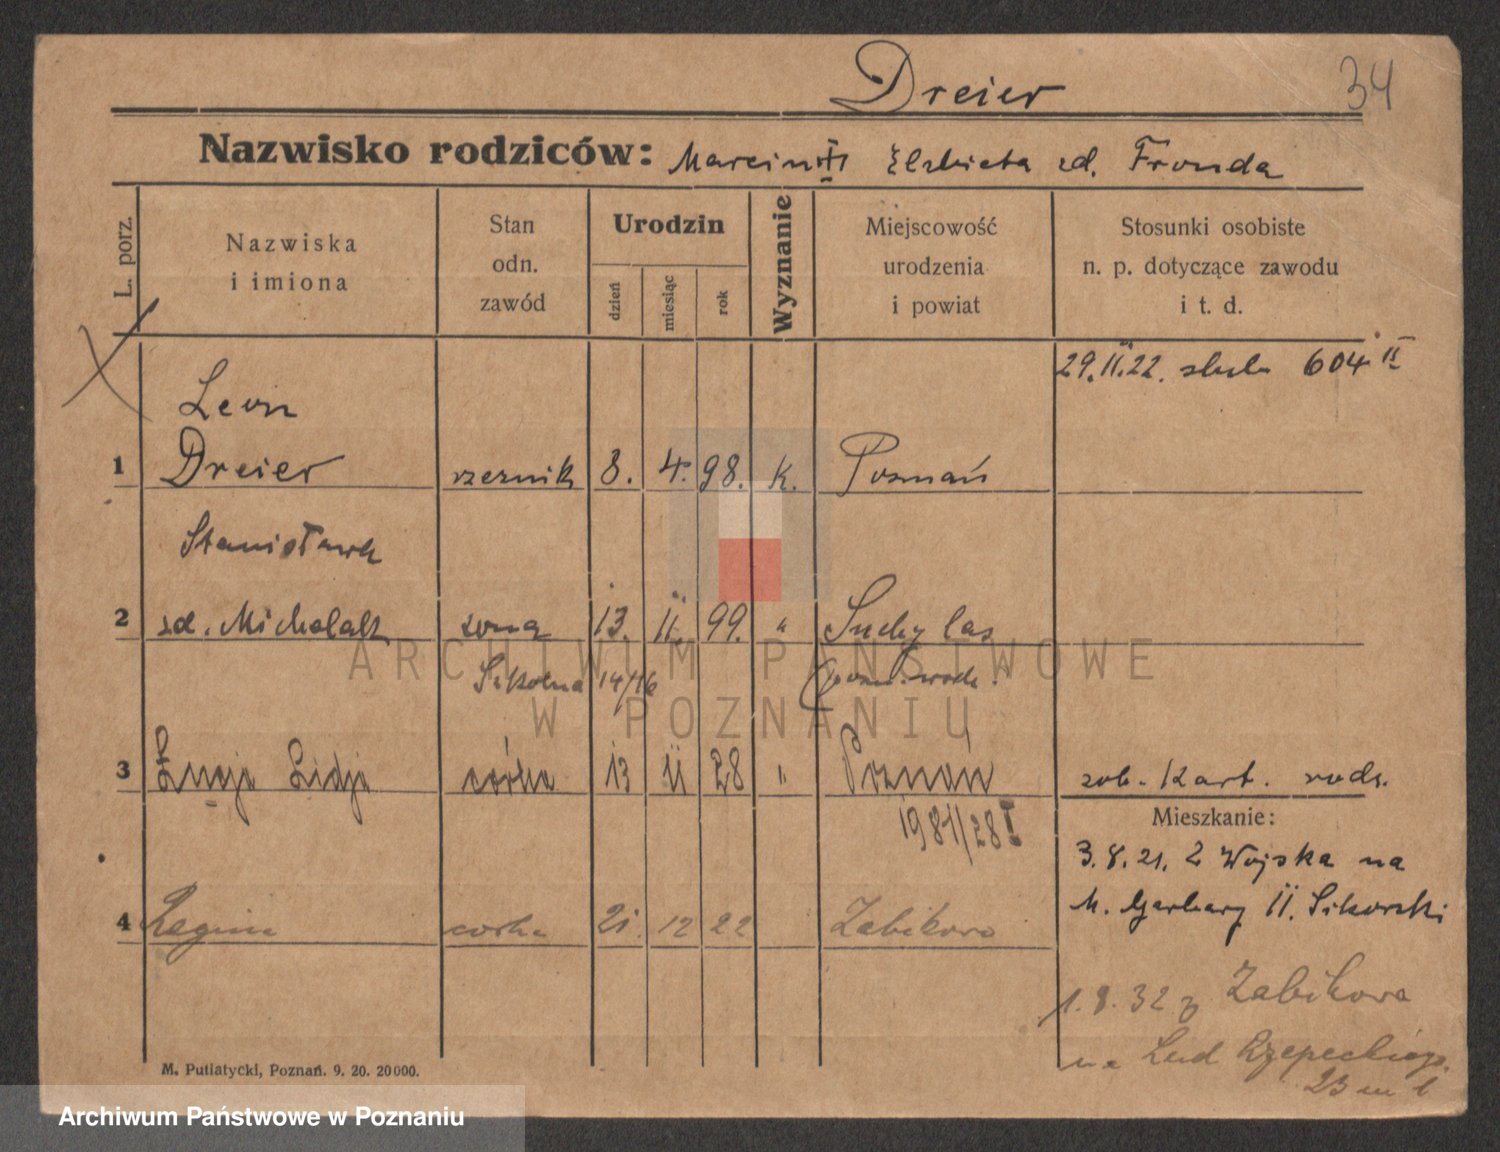 Dreier
34
Nazwisko rodziców: Marcin Elzbieta zd. Fronda
L. porz.
Nazwiska
i imiona
Stan
odn.
zawód
Urodzin
dzień
miesiąc
rok
Wyznanie
Miejscowość
urodzenia
i powiat
Stosunki osobiste
n. p. dotyczące zawodu
i t. d.
29.II.22. 604 II
Leon
1 Dreier rzeźnik 8. 4. 98. k. Poznań
Stanisława
2 zd. Michalak żona 13. II. 99. " Suchy las
14/16
3 Lidja córka 13 II 28 " Poznań
zob. Kart. rodz.
1981/28 I
Mieszkanie:
3.8.21. z Wojska na
M. Garbary II. Sikorski
4 Regina córka 21. 12 22 Żabikowo
1.8.32 z Żabikowa
na Lud Rzepeckiego
23 m 6
M. Putiatycki, Poznań. 9. 20. 20000.
ARCHIWUM PAŃSTWOWE
W POZNANIU
Archiwum Państwowe w Poznaniu